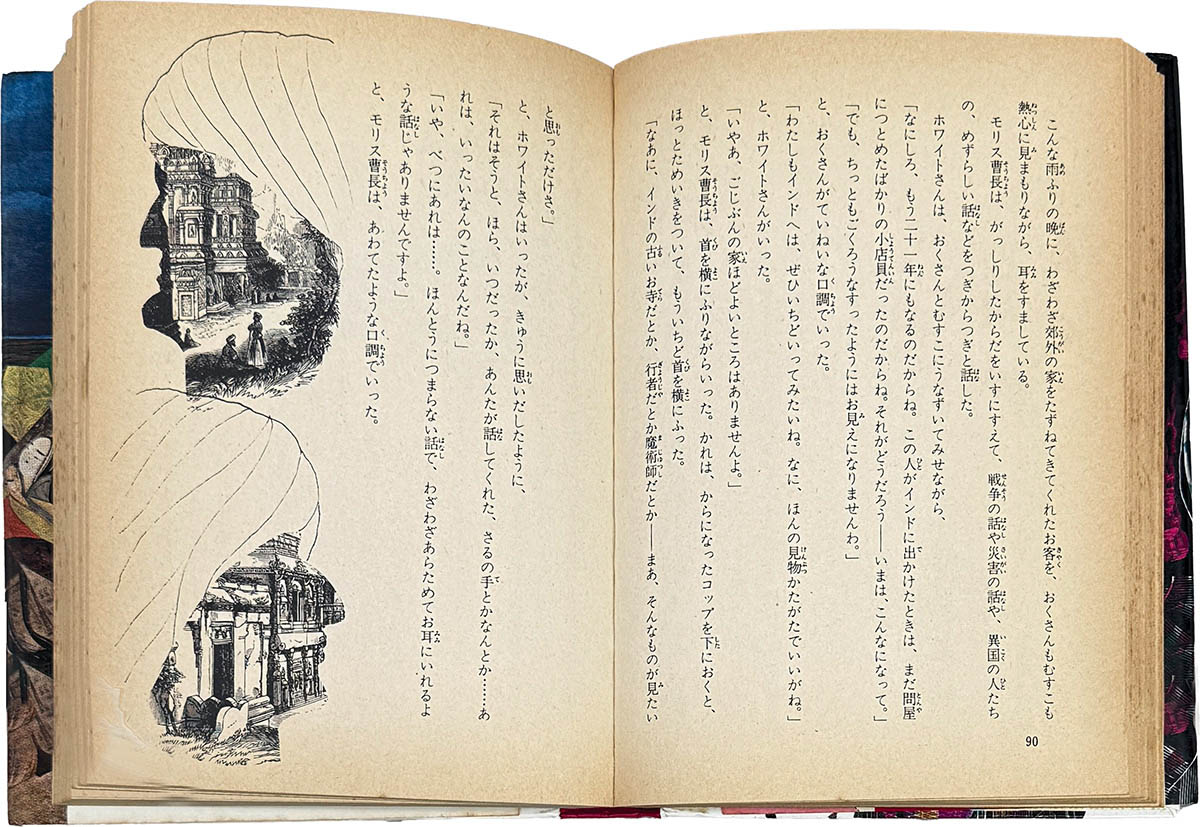 こんな雨ふりの晩に、わざわざ郊外の家をたずねてきてくれたお客を、おくさんもむすこも
熱心に見まもりながら、耳をすましている。
モリス曹長は、がっしりしたからだをいすにすえて、戦争の話や災害の話や、異国の人たち
の、めずらしい話などをつぎからつぎと話した。
ホワイトさんは、おくさんとむすこにうなずいてみせながら、
「なにしろ、もう二十一年にもなるのだからね。この人がインドに出かけたときは、まだ問屋
につとめたばかりの小店員だったのだからね。それがどうだろう――いまは、こんなになって。」
「でも、ちっともごくろうなすったようにはお見えになりませんわ。」
と、おくさんがていねいな口調でいった。
「わたしもインドへは、ぜひいちどいってみたいね。なに、ほんの見物かたがたでいいがね。」
と、ホワイトさんがいった。
「いやあ、ごじぶんの家ほどよいところはありませんよ。」
と、モリス曹長は、首を横にふりながらいった。かれは、からになったコップを下におくと、
ほっとためいきをついて、もういちど首を横にふった。
「なあに、インドの古いお寺だとか、行者だとか魔術師だとか――まあ、そんなものが見たい
90
と思っただけさ。」
と、ホワイトさんはいったが、きゅうに思いだしたように、
「それはそうと、ほら、いつだったか、あんたが話してくれた、さるの手とかなんとか……あ
れは、いったいなんのことなんだね。」
「いや、べつにあれは……。ほんとうにつまらない話で、わざわざあらためてお耳にいれるよ
うな話じゃありませんですよ。」
と、モリス曹長は、あわてたような口調でいった。